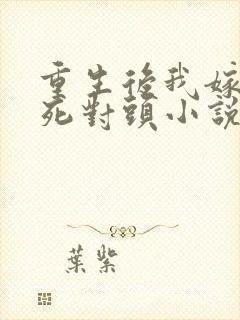 重生後我嫁
死對頭小說
葉紫